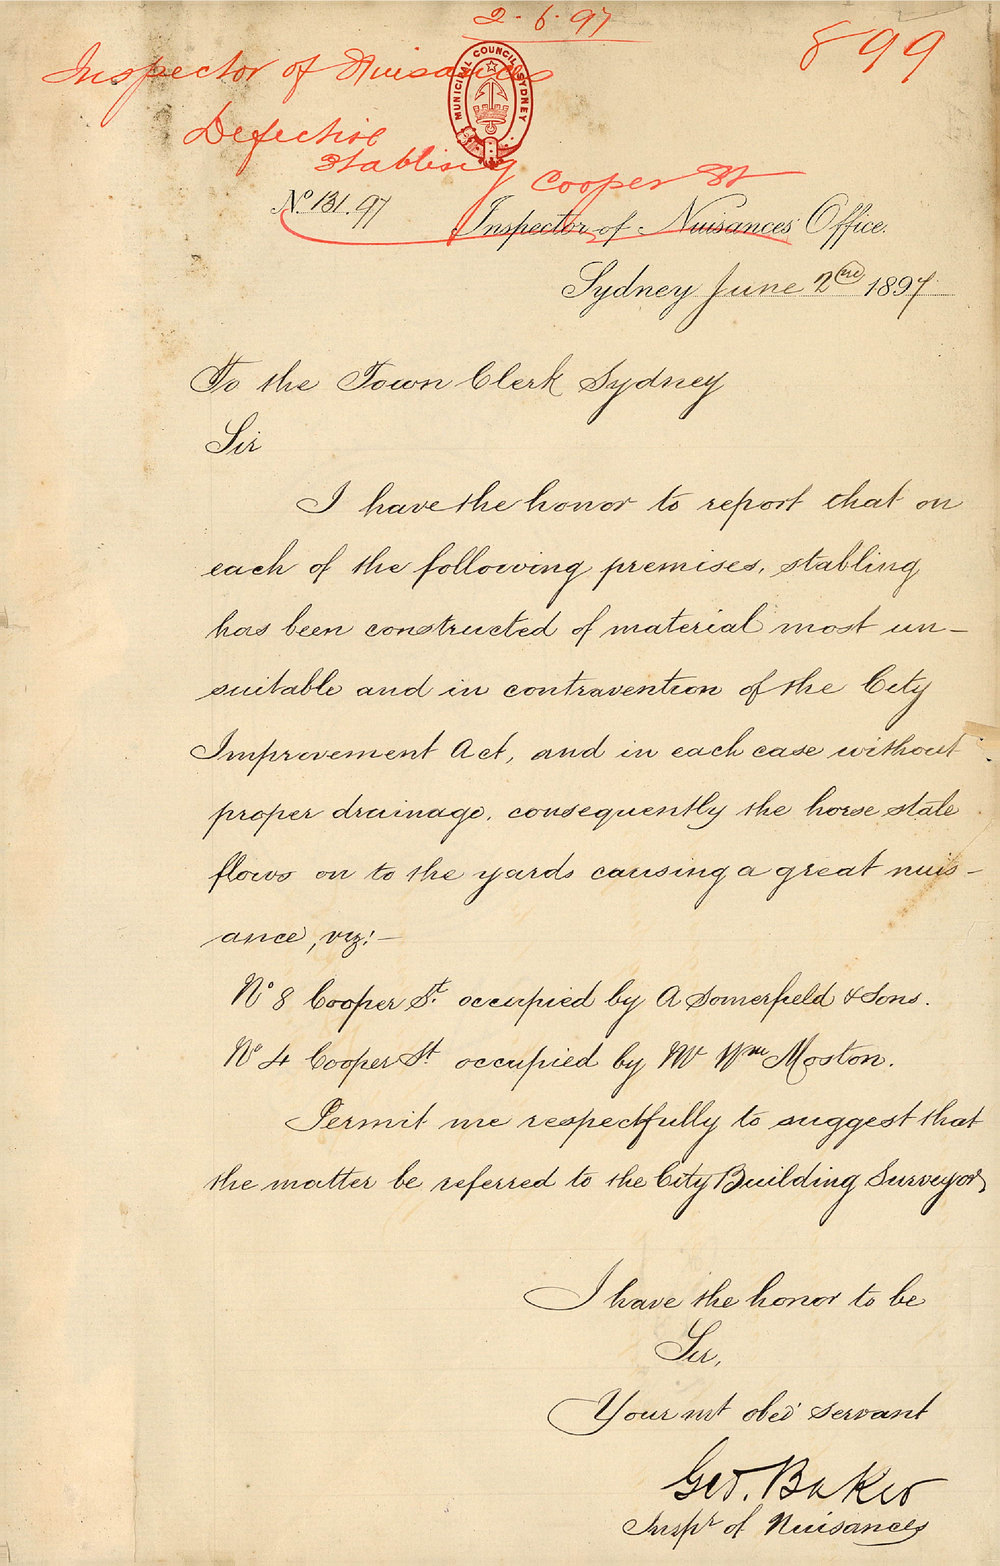 2.6.97
899
Inspector of Nuisances
MUNICIPAL COUNCIL SYDNEY
Defective
Stabling Cooper St
No. 131.97 Inspector of Nuisances Office.
Sydney June 2nd 1897
To the Town Clerk Sydney
Sir
I have the honor to report that on
each of the following premises, stabling
has been constructed of material most un-
suitable and in contravention of the City
Improvement Act, and in each case without
proper drainage, consequently the horse stale
flows on to the yards causing a great nuis-
ance, viz:-
No 8 Cooper St. occupied by A Somerfield & Sons.
No 4 Cooper St. occupied by Mr Wm Moston.
Permit me respectfully to suggest that
the matter be referred to the City Building Surveyor,
I have the honor to be
Sir,
Your mt obed servant
Geo. Baker
Inspr of Nuisances